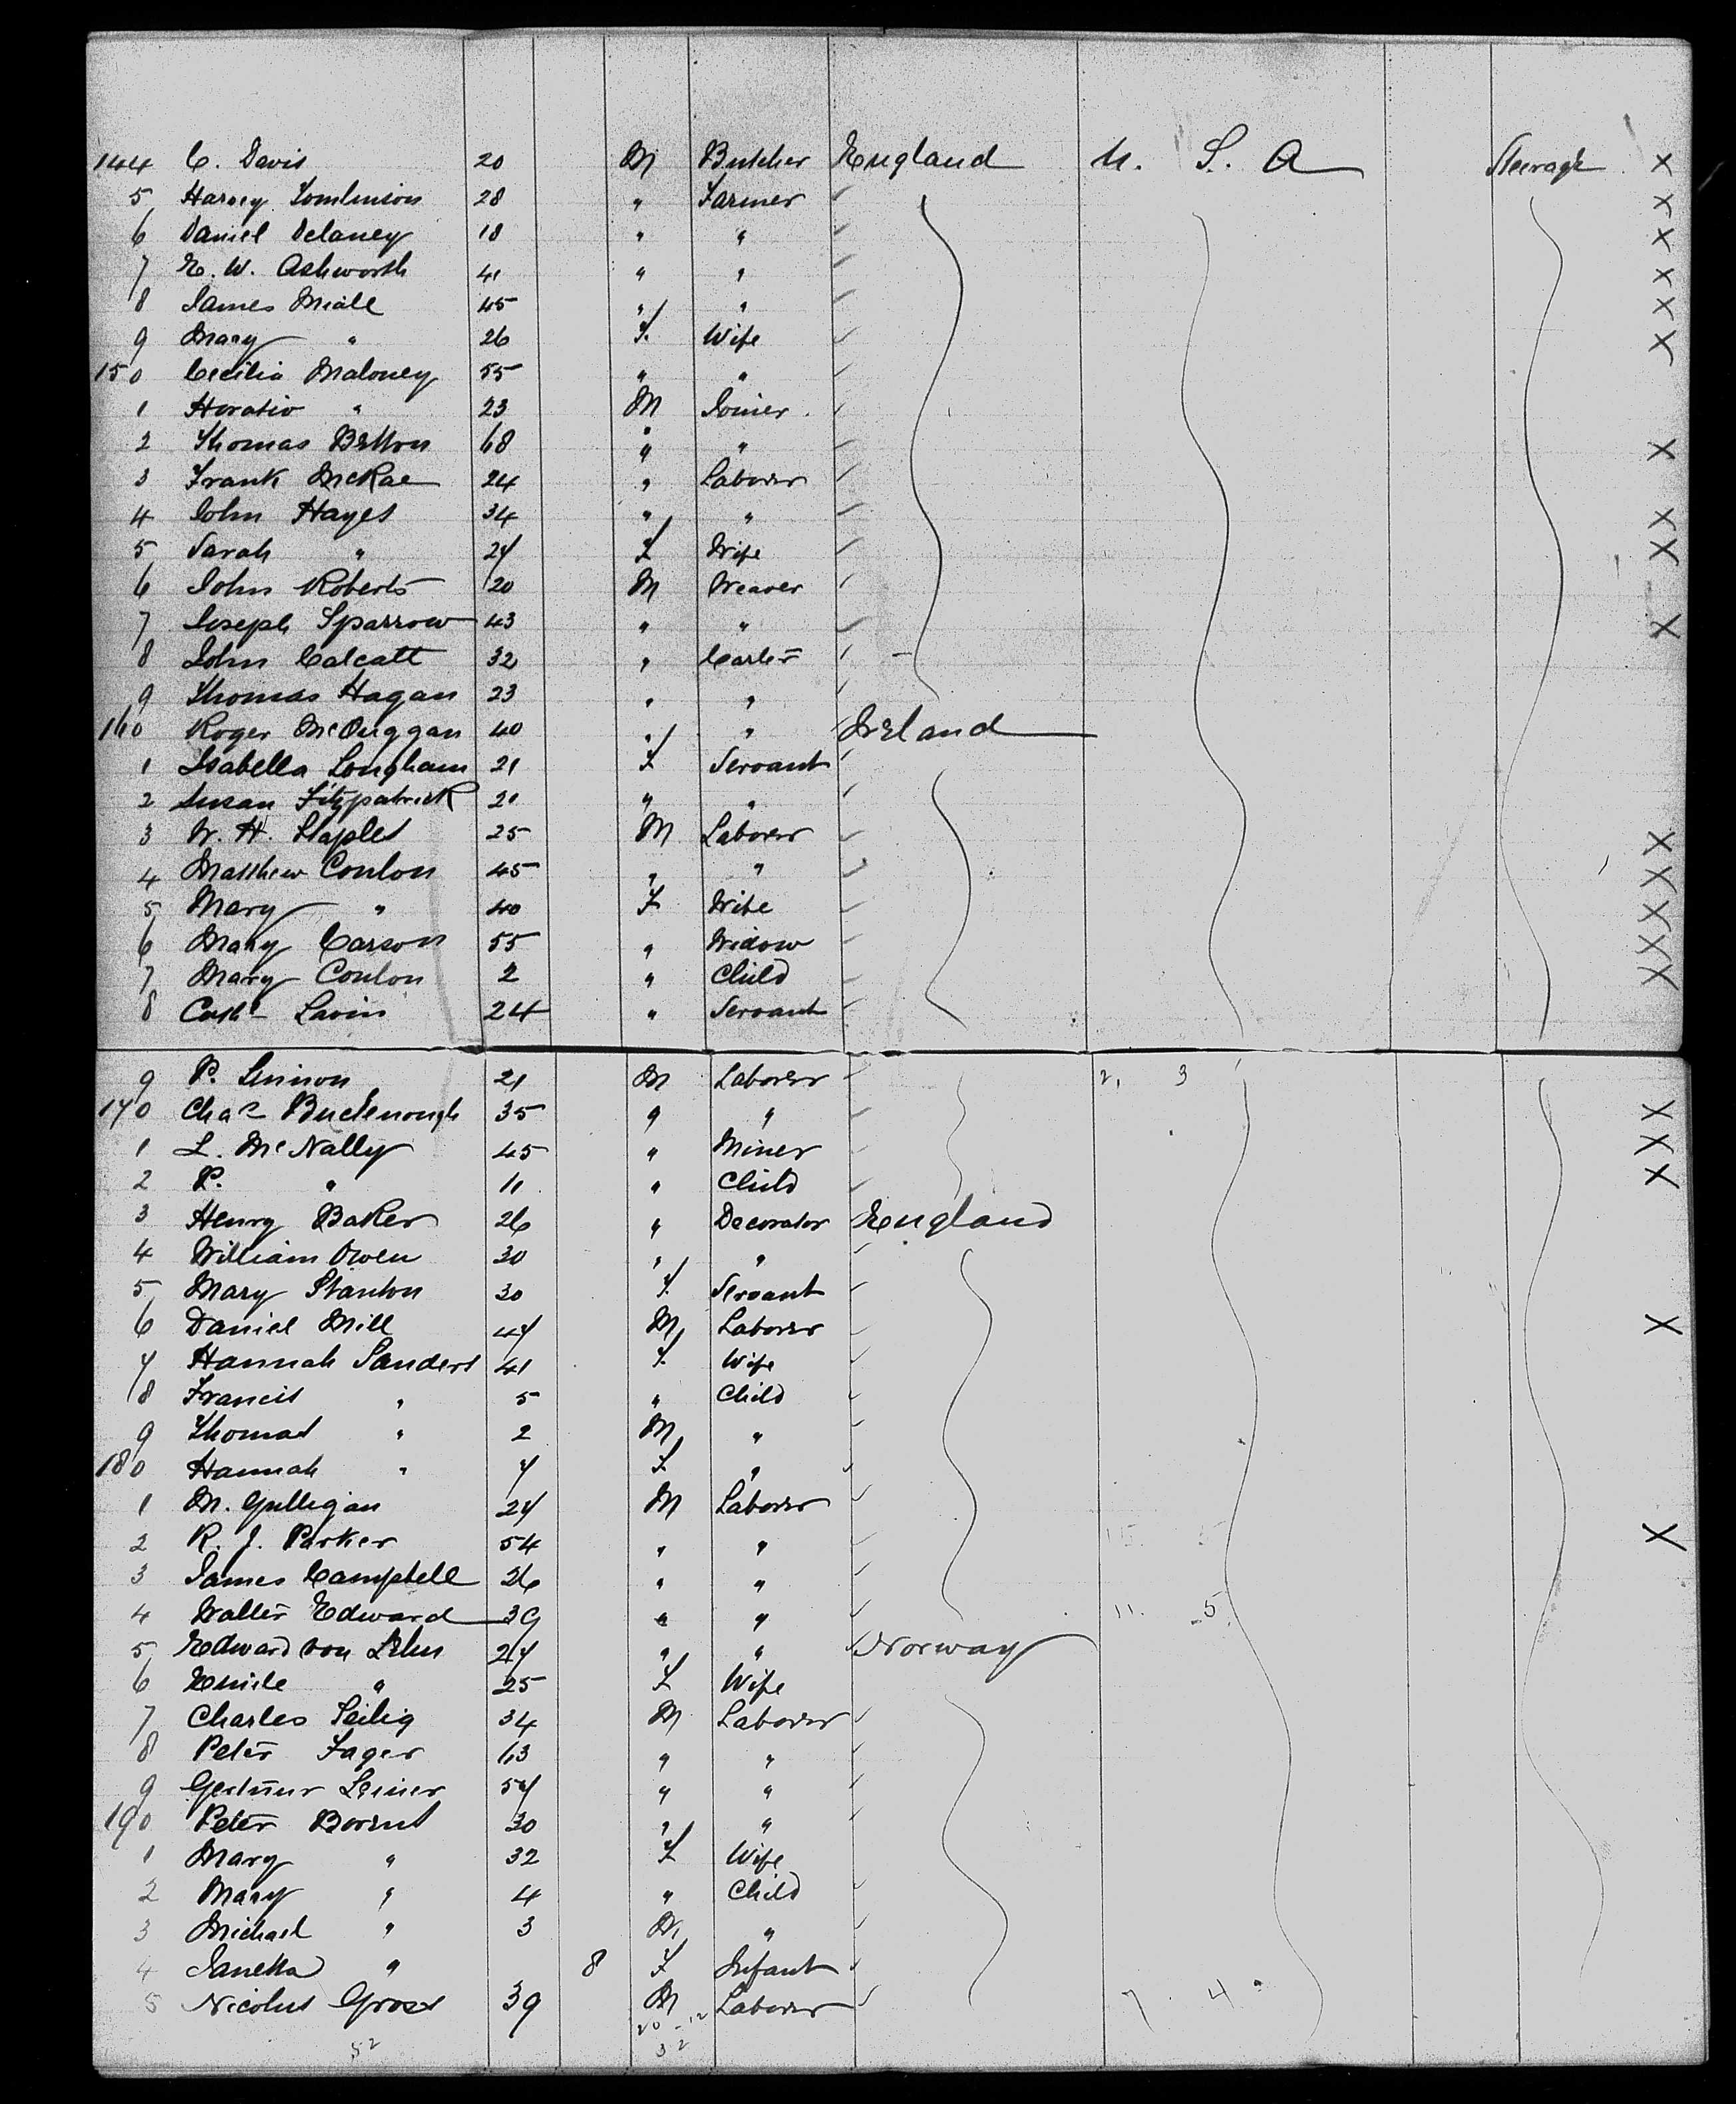 144 C. Davis 20 M Butcher England U. S. A Steerage X
5 Harvey Tomlinson 28 " Farmer X
6 Daniel Delaney 18 " " X
7 E. W. Ashworth 41 " " X
8 James Miall 45 " " X
9 Mary " 26 F. Wife X
150 Cecilia Maloney 55 " "
1 Horatio " 23 M Joiner
2 Thomas Britton 68 " " X
3 Frank McRae 24 " Laborer
4 John Hayes 34 " " X
5 Sarah " 27 F Wife X
6 John Roberts 20 M Weaver
7 Joseph Sparrow 43 " " X
8 John Calcatt 32 " Carter
9 Thomas Hagan 23 " "
160 Roger McGuggan 40 " " Ireland
1 Isabella Longham 21 F Servant
2 Susan Fitzpatrick 21 " "
3 W. H. Staples 25 M Laborer X
4 Matthew Conlon 45 " " X
5 Mary " 40 F Wife X
6 Mary Carson 55 " Widow X
7 Mary Conlon 2 " Child X
8 Cath Lavin 24 " Servant
9 P. Lennon 21 M Laborer 2, 3
170 Chas Buckenough 35 " " X
1 L. McNally 45 " Miner X
2 P. " 11 " Child X
3 Henry Baker 26 " Decorator England
4 William Owen 30 " "
5 Mary Stanton 30 F. Servant
6 Daniel Mill 47 M Laborer X
7 Hannah Sanders 41 F. Wife
8 Francis " 5 " Child
9 Thomas " 2 M "
180 Hannah " 7 F "
1 M. Gulligan 27 M Laborer
2 R. J. Parker 54 " " X
3 James Campbell 26 " "
4 Walter Edward 39 " " 11. 5
5 Edward von 27 " " Norway
6 Emile " 25 F Wife
7 Charles Seilig 34 M Laborer
8 Peter Fager 63 " "
9 Leiner 57 " "
190 Peter 30 " "
1 Mary " 32 F Wife
2 Mary " 4 " Child
3 Michael " 3 M "
4 Janetta " 8 F Infant
5 Nicolus Gross 39 M Laborer 7 4
52 20-12
32